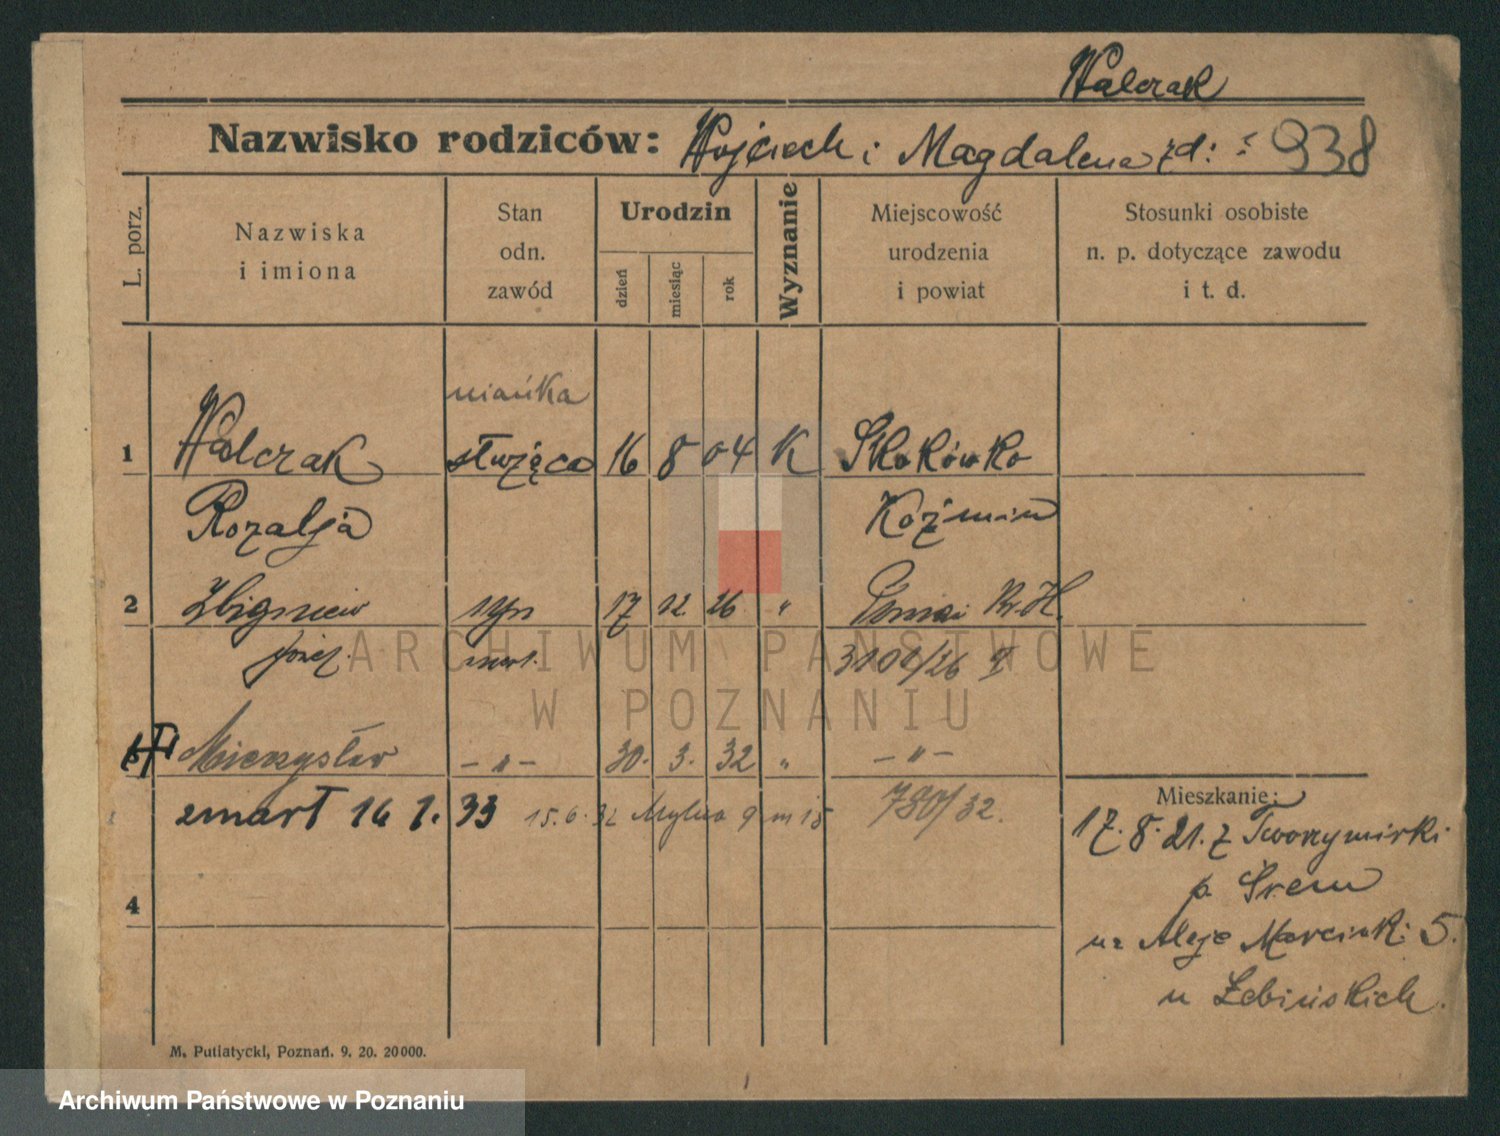 Walczak
Nazwisko rodziców: Wojciech i Magdalena zd: 938
L. porz.
Nazwiska i imiona
Stan odn. zawód
Urodzin
dzień
miesiąc
rok
Wyznanie
Miejscowość urodzenia i powiat
Stosunki osobiste n. p. dotyczące zawodu i t. d.
niańka
1 Walczak służąca 16 8 04 K Skokówko
Rozalja Koźmin
2 Zbigniew syn 17 12 26 "
józef. 3101/26
Mieczysław - " - 30. 3. 32 " - " -
zmarł 16 1. 33 15.6.32 Mylna 9 m 15 780/32.
4
Mieszkanie:
17. 8. 21. z Tworzymirki
p. Śrem
na Aleje Marcink: 5.
u Żebińskich.
M. Putiatycki, Poznań. 9. 20. 20000.
ARCHIWUM PAŃSTWOWE
W POZNANIU
Archiwum Państwowe w Poznaniu